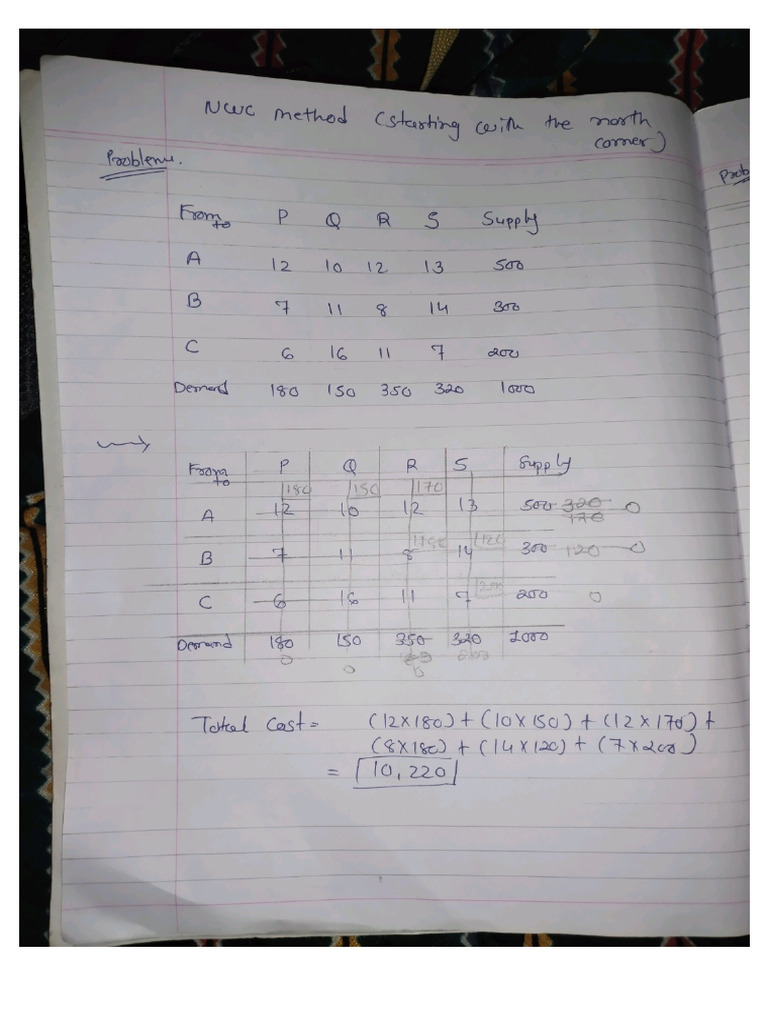 NWC method (starting with the north
corner)
Problem.
Prob
From to P Q R S Supply
A 12 10 12 13 500
B 7 11 8 14 300
C 6 16 11 7 200
Demand 180 150 350 320 1000
From to P Q R S Supply
180 150 170
A 12 10 12 13 500 320 170 0
180 120
B 7 11 8 14 300 120 0
200
C 6 16 11 7 200 0
Demand 180 150 350 320 1000
0 0 0
Total Cost = (12×180) + (10×150) + (12×170) +
(8×180) + (14×120) + (7×200)
= 10,220